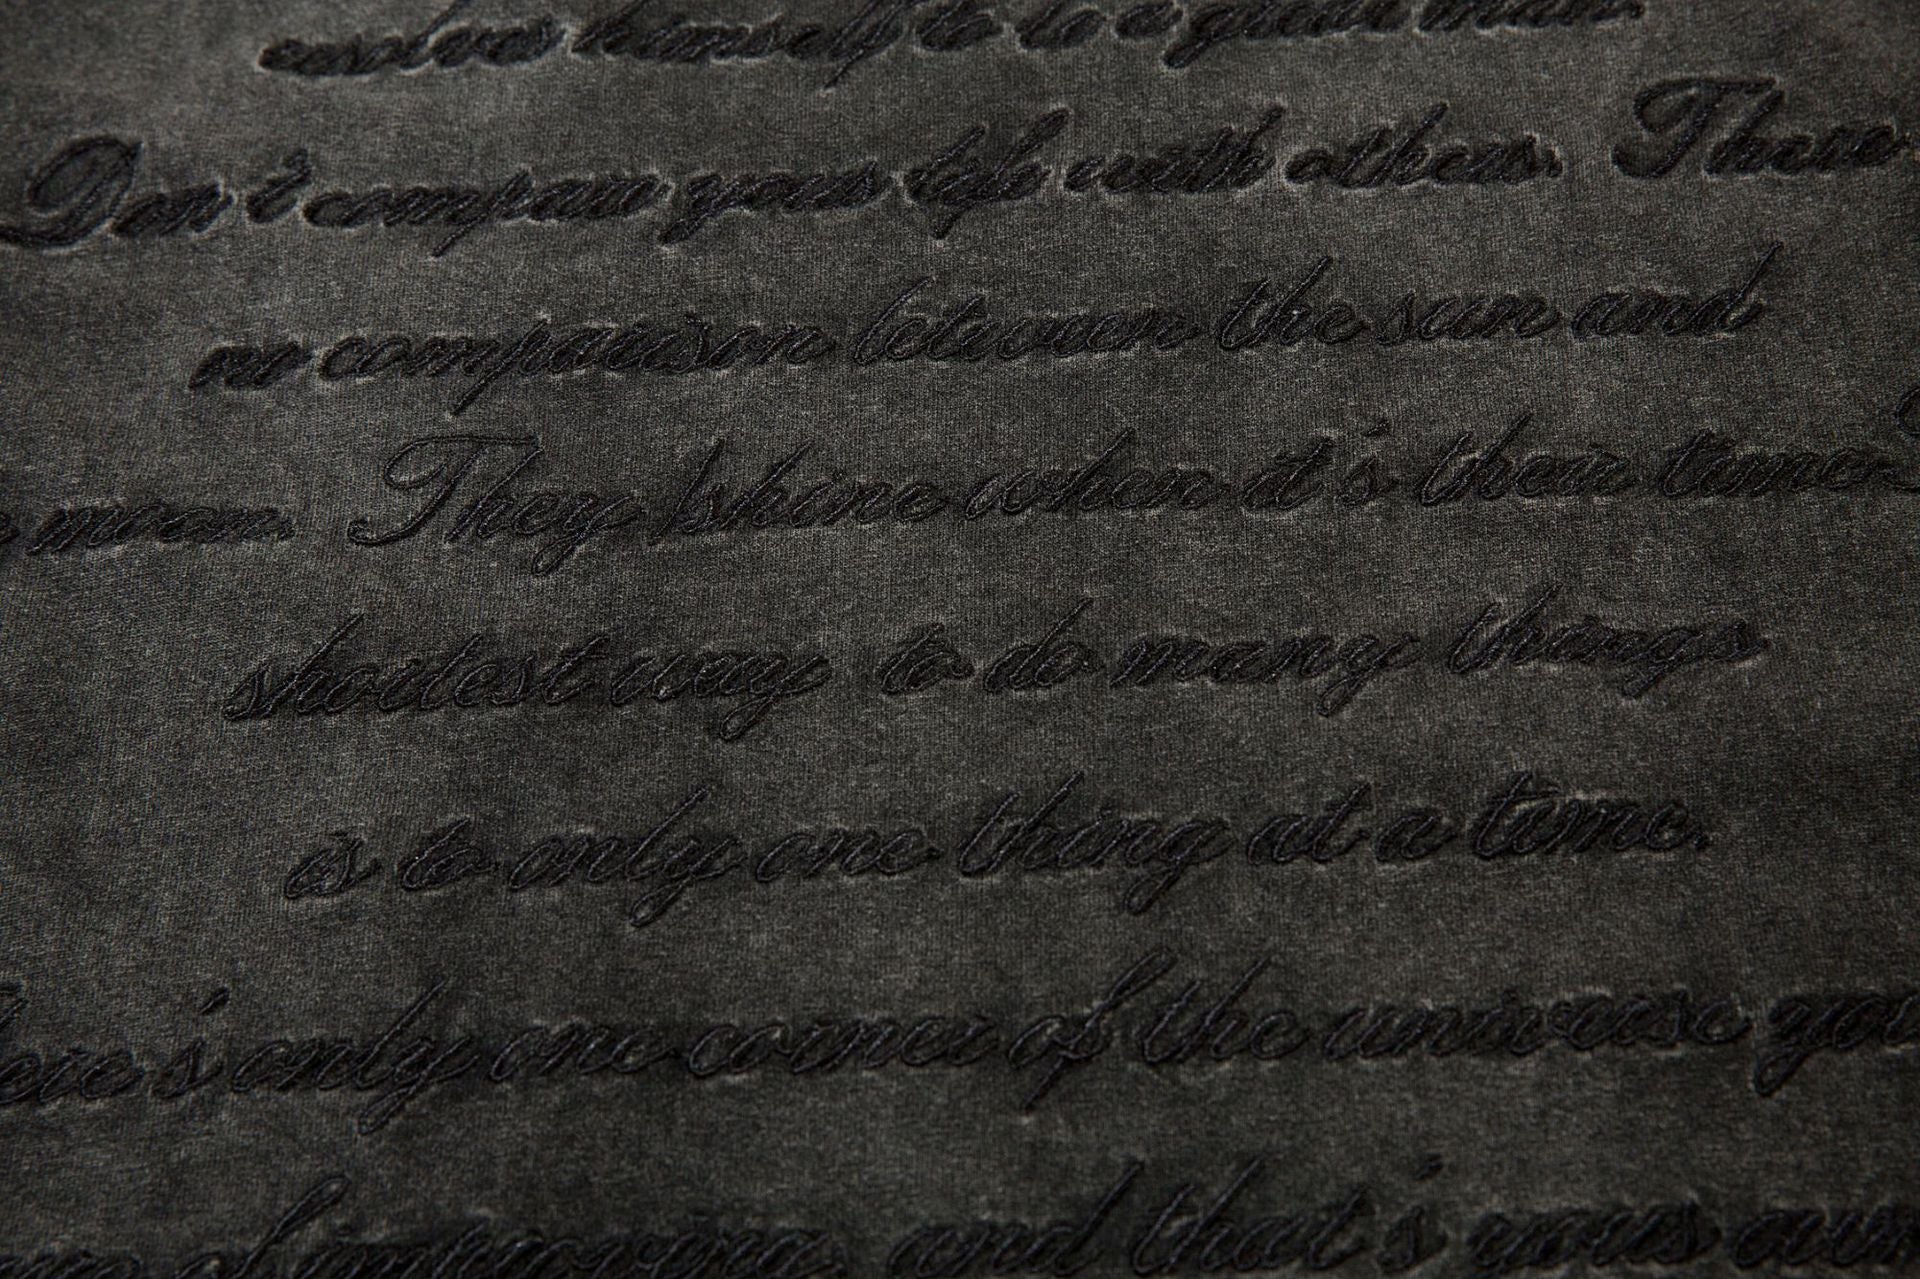 himself to do a great man.
Don't compare your life with others. There
no comparison between the sun and
moon. They shine when it's their time
shortest way to do many things
is to only one thing at a time.
There's only one corner of the universe you
of improving, and that's your own